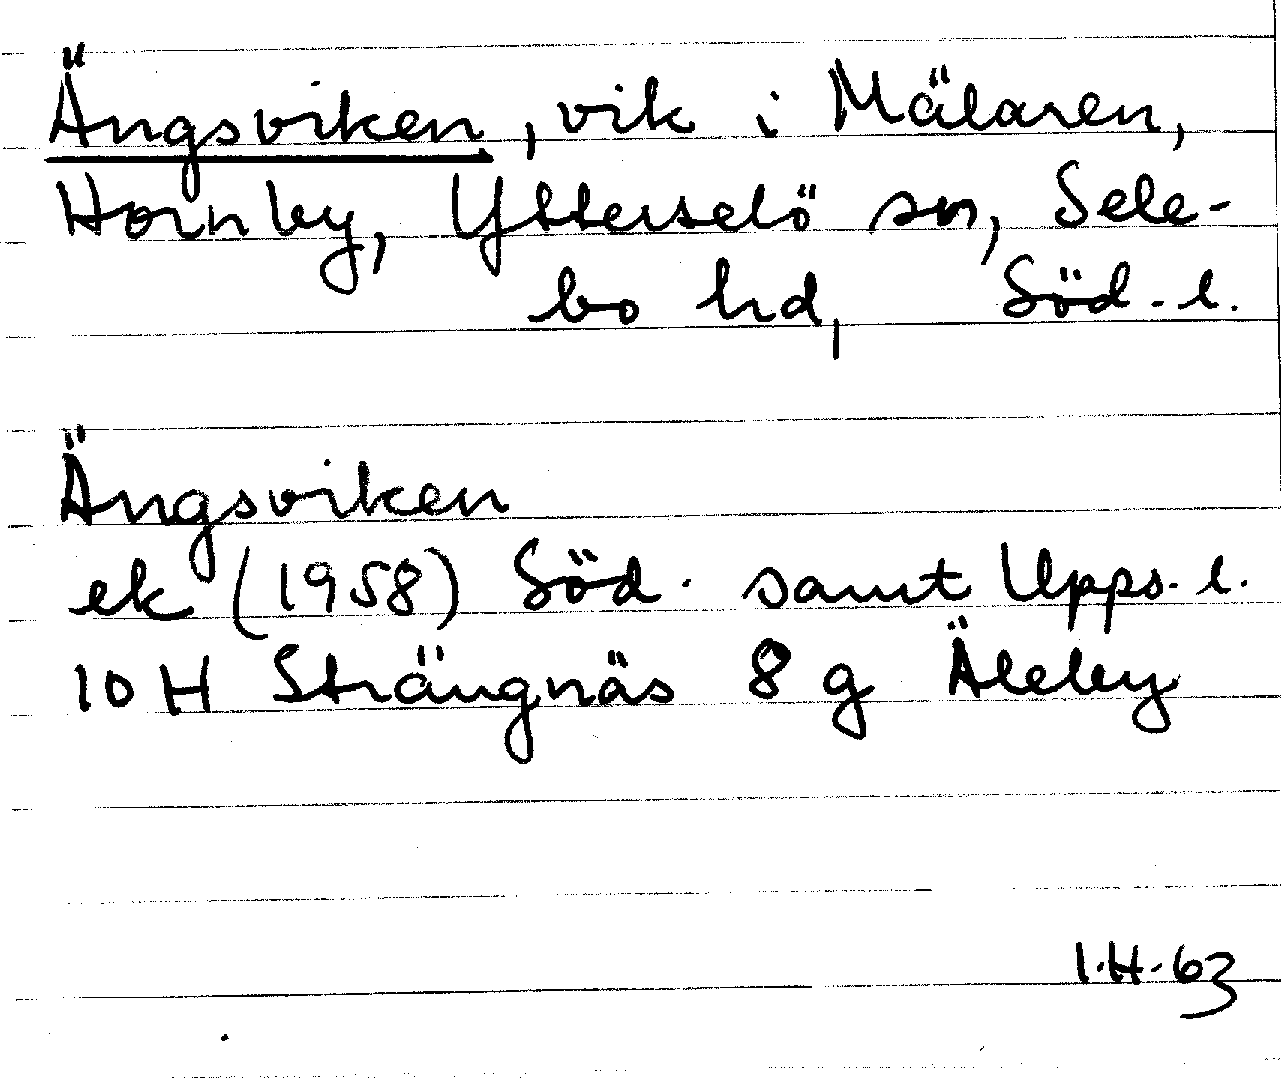 Ängsviken, vik i Mälaren,
Hornby, Ytterselö sn, Sele-
bo hd, Söd. l.
Ängsviken
ek (1958) Söd. samt Upps. l.
10 H Strängnäs 8 g Äleby
I.H. 63